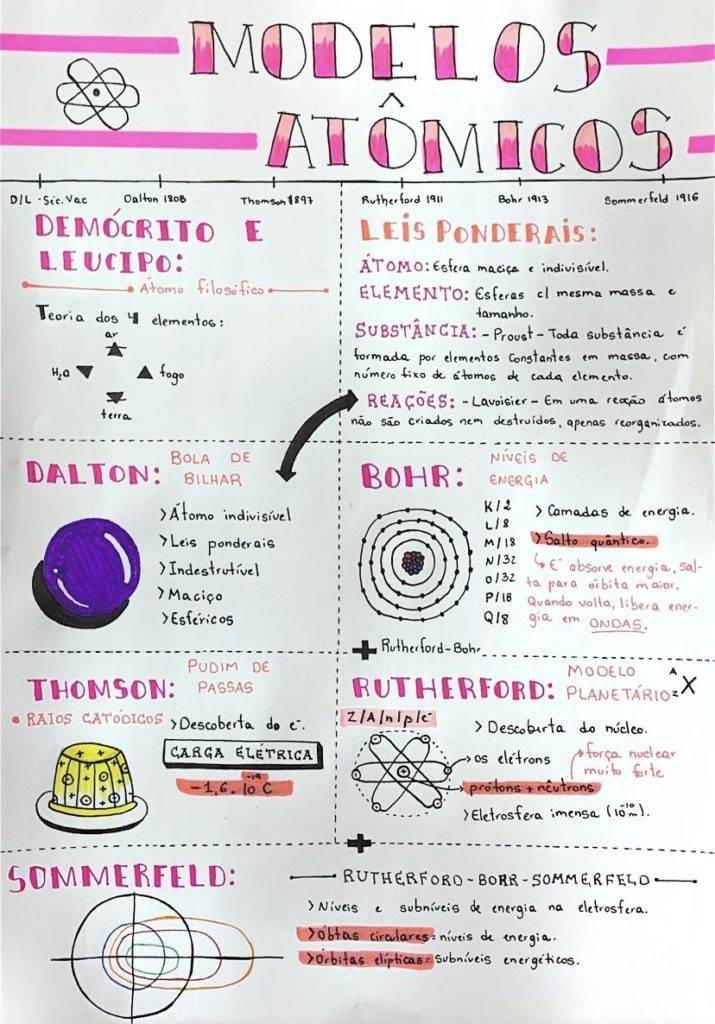 MODELOS
ATÔMICOS
D/L - Séc. Vac
Dalton 1808
Thomson 1897
Rutherford 1911
Bohr 1913
Sommerfeld 1916
DEMÓCRITO E
LEUCIPO:
Átomo filosófico
Teoria dos 4 elementos:
ar
H₂O
fogo
terra
LEIS PONDERAIS:
ÁTOMO: Esfera maciça e indivisível.
ELEMENTO: Esferas c/ mesma massa e
tamanho.
SUBSTÂNCIA: - Proust - Toda substância é
formada por elementos constantes em massa, com
número fixo de átomos de cada elemento.
REAÇÕES: - Lavoisier - Em uma reação átomos
não são criados nem destruídos, apenas reorganizados.
DALTON: BOLA DE
BILHAR
> Átomo indivisível
> Leis ponderais
> Indestrutível
> Maciço
> Esféricos
BOHR: NÍVEIS DE
ENERGIA
K/2
L/8
M/18
N/32
O/32
P/18
Q/8
> Camadas de energia.
> Salto quântico.
E⁻ absorve energia, sal-
ta para órbita maior.
Quando volta, libera ener-
gia em ONDAS.
+ Rutherford-Bohr
THOMSON: PUDIM DE
PASSAS
• RAIOS CATÓDICOS
> Descoberta do e⁻.
CARGA ELÉTRICA
-1,6.10⁻¹⁹ C
RUTHERFORD: MODELO
PLANETÁRIO
A
Z X
Z/A/n/p/e⁻
> Descoberta do núcleo.
os elétrons
força nuclear
muito forte
prótons + nêutrons
> Eletrosfera imensa (10⁻¹⁰m).
+
SOMMERFELD:
RUTHERFORD-BORR-SOMMERFELD
> Níveis e subníveis de energia na eletrosfera.
> Óbtas circulares = níveis de energia.
> Órbitas elípticas = subníveis energéticos.